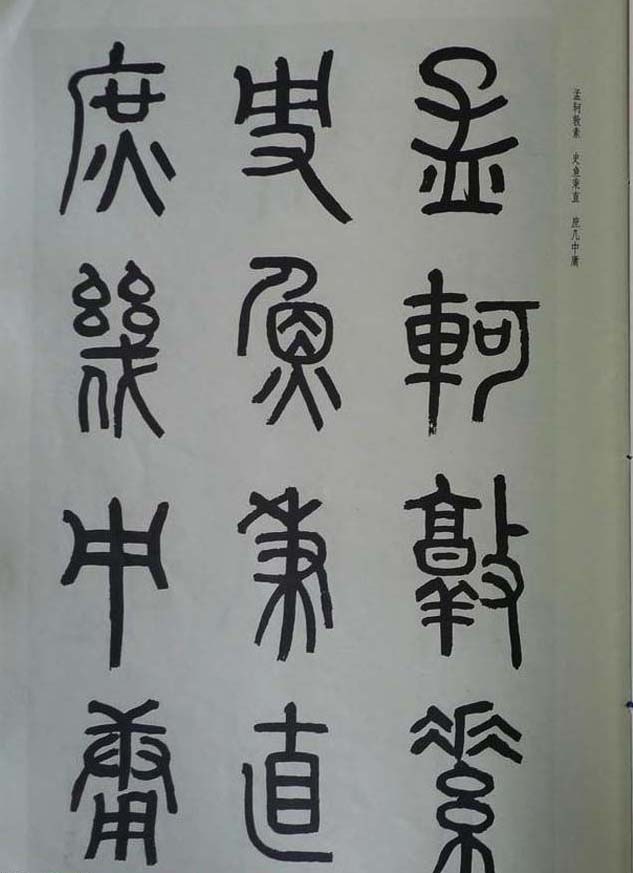 孟轲敦素 史鱼秉直 庶几中庸
孟軻敦素
史魚秉直
庶幾中庸